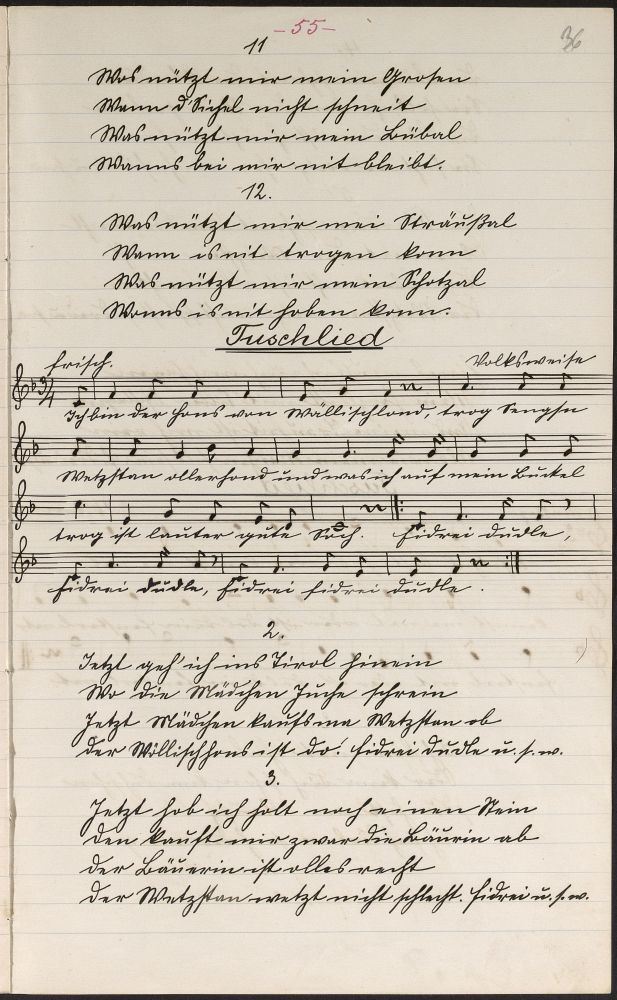 -55-
36
11
Was nützt mir mein Grosen
Wann d'Sichel nicht schneit
Was nützt mir mein Bübal
Wanns bei mir nit bleibt.
12.
Was nützt mir mei Sträußal
Wann is nit trogen konn
Was nützt mir mein Schotzal
Wonns is nit hoben konn.
Tuschlied
frisch.
Volksweise
3/4
Ich bin der Hons von Wällischlond, trog Sengsn
Wetzstan ollerhond und was ich auf mein Buckel
trog ist lauter gute Soch. Fidrei dudle,
fidrei dudle, fidrei fidrei dudle.
2.
Jetzt geh' ich ins Tirol hinein
Wo die Mädchen Juche schrein
Jetzt Mädchen kaufs ma Wetzstan ob
Der Wällischhons ist do! fidrei dudle u.s.w.
3.
Jetzt hob ich holt noch einen Stein
Den kauft mir zwar die Bäurin ab
Der Bäuerin ist olles recht
Der Wetzstan wetzt nicht schlecht. fidrei u.s.w.